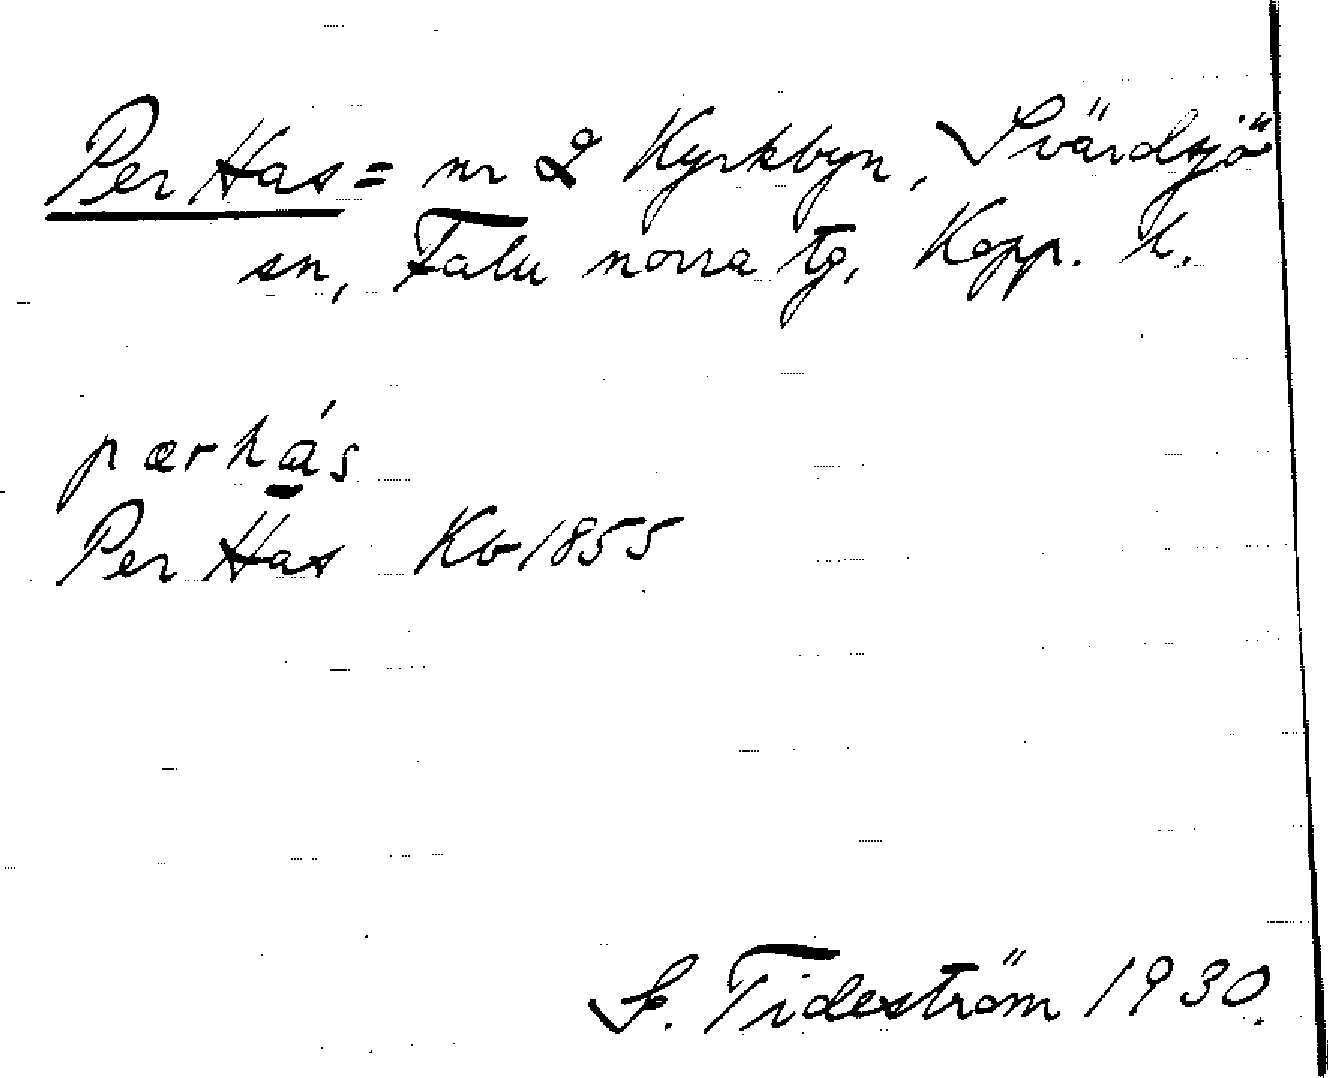 Per Has = nr 2 Kyrkbyn, Svärdsjö
sn, Falu norra tg, Kopp. l.
pærhás
Per Has Kb 1855
S. Tideström 1930.